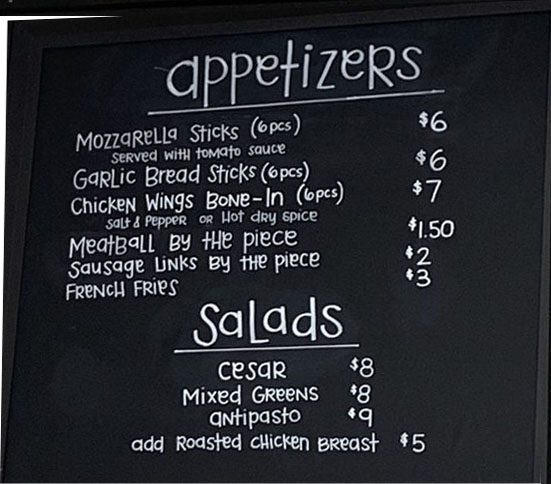 appetizers
Mozzarella Sticks (6pcs) $6
served with tomato sauce
Garlic Bread Sticks (6pcs) $6
Chicken Wings Bone-In (6pcs) $7
salt & pepper or hot dry spice
Meatball by the piece $1.50
Sausage Links by the piece $2
French Fries $3
Salads
cesar $8
Mixed Greens $8
antipasto $9
add Roasted chicken breast $5